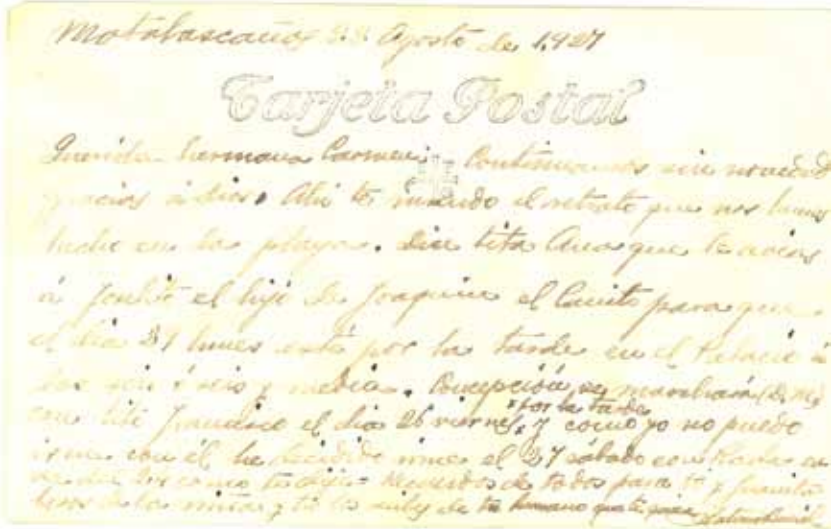 Matalascañas 22 Agosto de 1.927
Tarjeta Postal
Querida hermana Carmen: Continuamos sin novedad
gracias á dios. Ahí te mando el retrato que nos hemos
hecho en la playa. Dice tita Ana que le avises
á Joselito el hijo de Joaquin el para que
el dia lunes esté por la tarde en el Palacio á
las seis ó seis y media. Concepción se marchará (D.m.)
con tito Francisco el dia 26 viernes por la tarde y como yo no puedo
irme con él he decidido irme el 27 sábado con
como te dije. Recuerdos de todos para ti y
besos á las niñas y tú los de tu hermano que te quiere